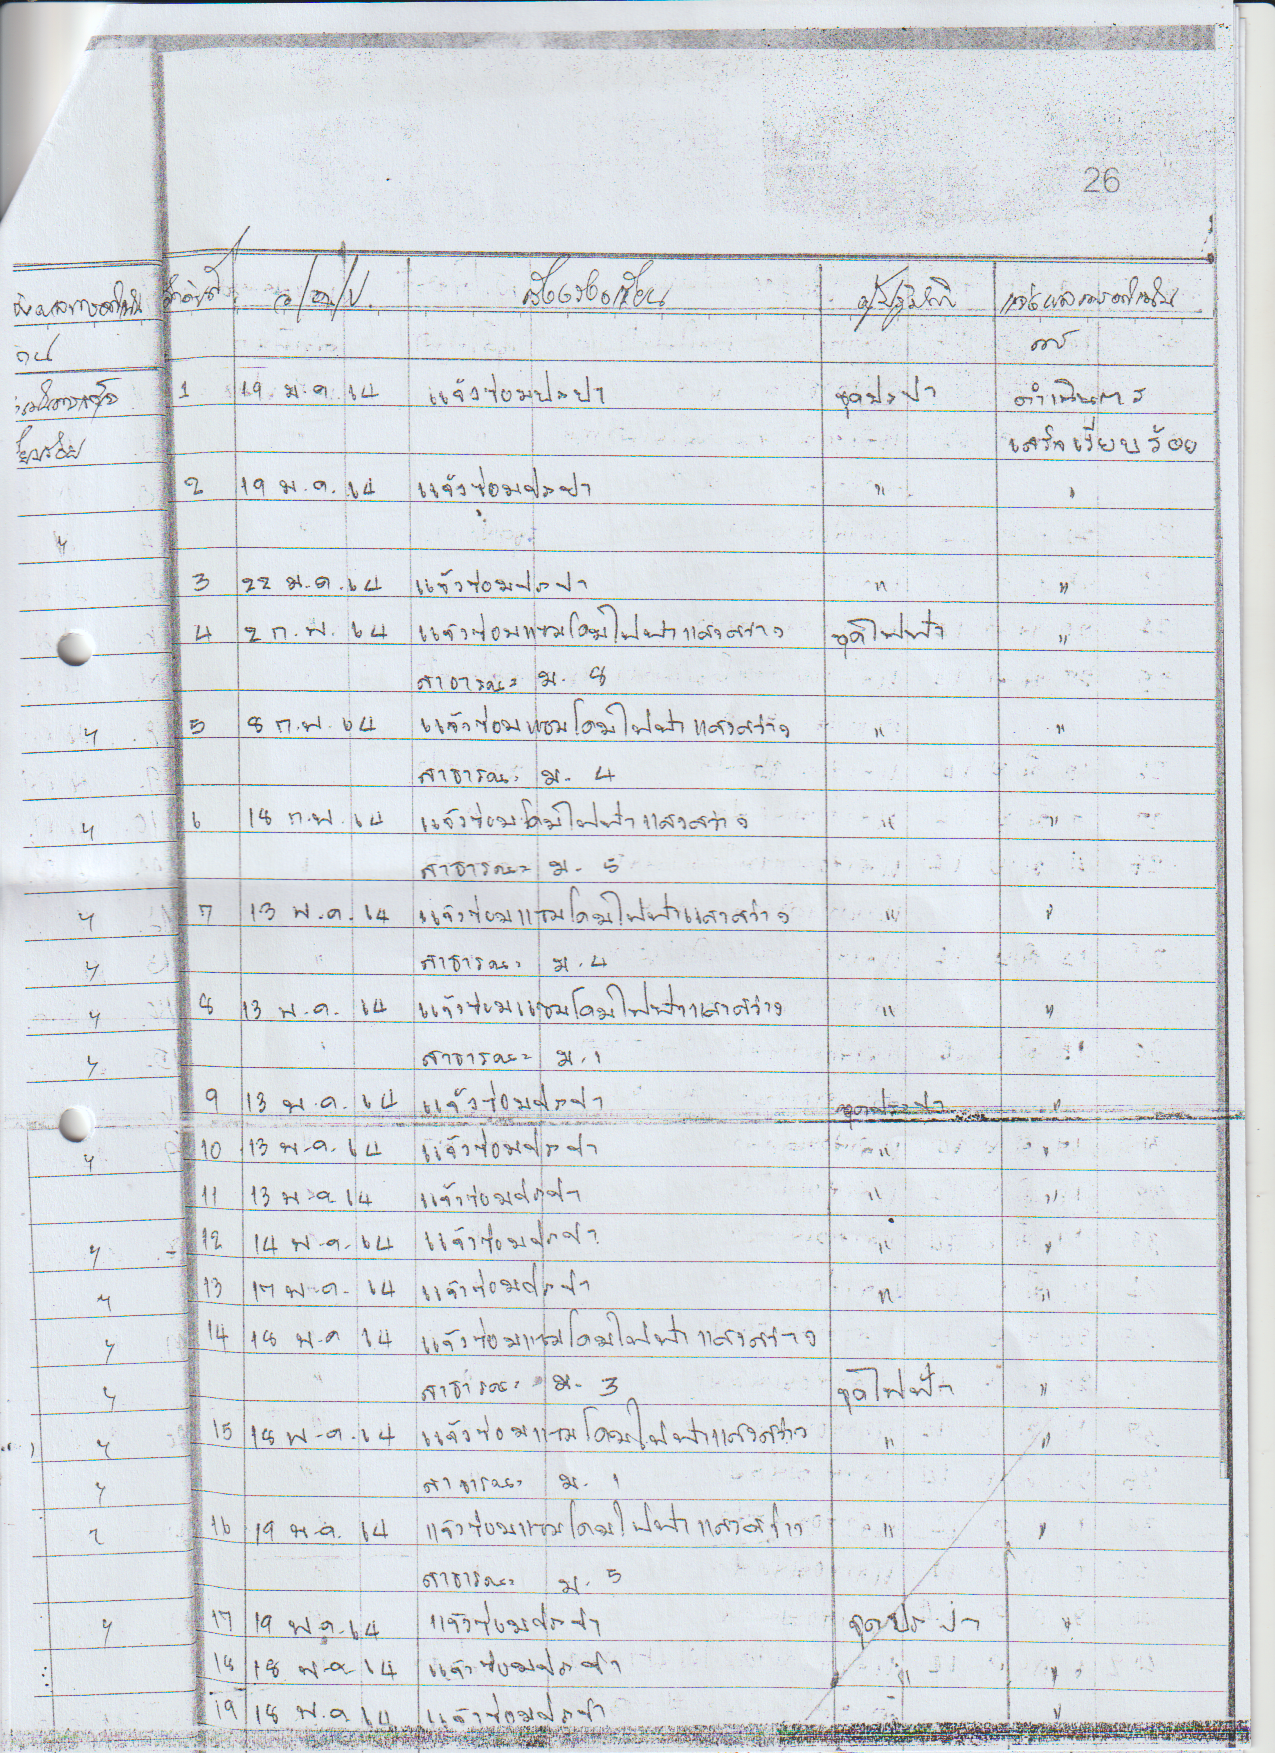 26
ลำดับที่ ว/ด/ป. เรื่องร้องเรียน ผู้ปฏิบัติ แจ้งผลการดำเนิน
การ
1 19 ม.ค. 64 แจ้งซ่อมประปา ชุดประปา ดำเนินการ
เสร็จเรียบร้อย
2 19 ม.ค. 64 แจ้งซ่อมประปา " "
3 22 ม.ค. 64 แจ้งซ่อมประปา " "
4 2 ก.พ. 64 แจ้งซ่อมแซมโคมไฟฟ้าแสงสว่าง ชุดไฟฟ้า "
สาธารณะ ม. 8
5 8 ก.พ. 64 แจ้งซ่อมแซมโคมไฟฟ้าแสงสว่าง " "
สาธารณะ ม. 4
6 18 ก.พ. 64 แจ้งซ่อมโคมไฟฟ้าแสงสว่าง " "
สาธารณะ ม. 5
7 13 พ.ค. 64 แจ้งซ่อมแซมโคมไฟฟ้าแสงสว่าง " "
สาธารณะ ม. 4
8 13 พ.ค. 64 แจ้งซ่อมแซมโคมไฟฟ้าแสงสว่าง " "
สาธารณะ ม. 1
9 13 พ.ค. 64 แจ้งซ่อมประปา ชุดประปา "
10 13 พ.ค. 64 แจ้งซ่อมประปา " "
11 13 พ.ค 64 แจ้งซ่อมประปา " "
12 14 พ.ค. 64 แจ้งซ่อมประปา " "
13 17 พ.ค. 64 แจ้งซ่อมประปา " "
14 18 พ.ค 64 แจ้งซ่อมแซมโคมไฟฟ้าแสงสว่าง
สาธารณะ ม. 3 ชุดไฟฟ้า "
15 18 พ.ค. 64 แจ้งซ่อมแซมโคมไฟฟ้าแสงสว่าง " "
สาธารณะ ม. 1
16 19 พ.ค. 64 แจ้งซ่อมแซมโคมไฟฟ้าแสงสว่าง " "
สาธารณะ ม. 5
17 19 พ.ค. 64 แจ้งซ่อมประปา ชุดประปา "
18 18 พ.ค 64 แจ้งซ่อมประปา " "
19 18 พ.ค 64 แจ้งซ่อมประปา " "